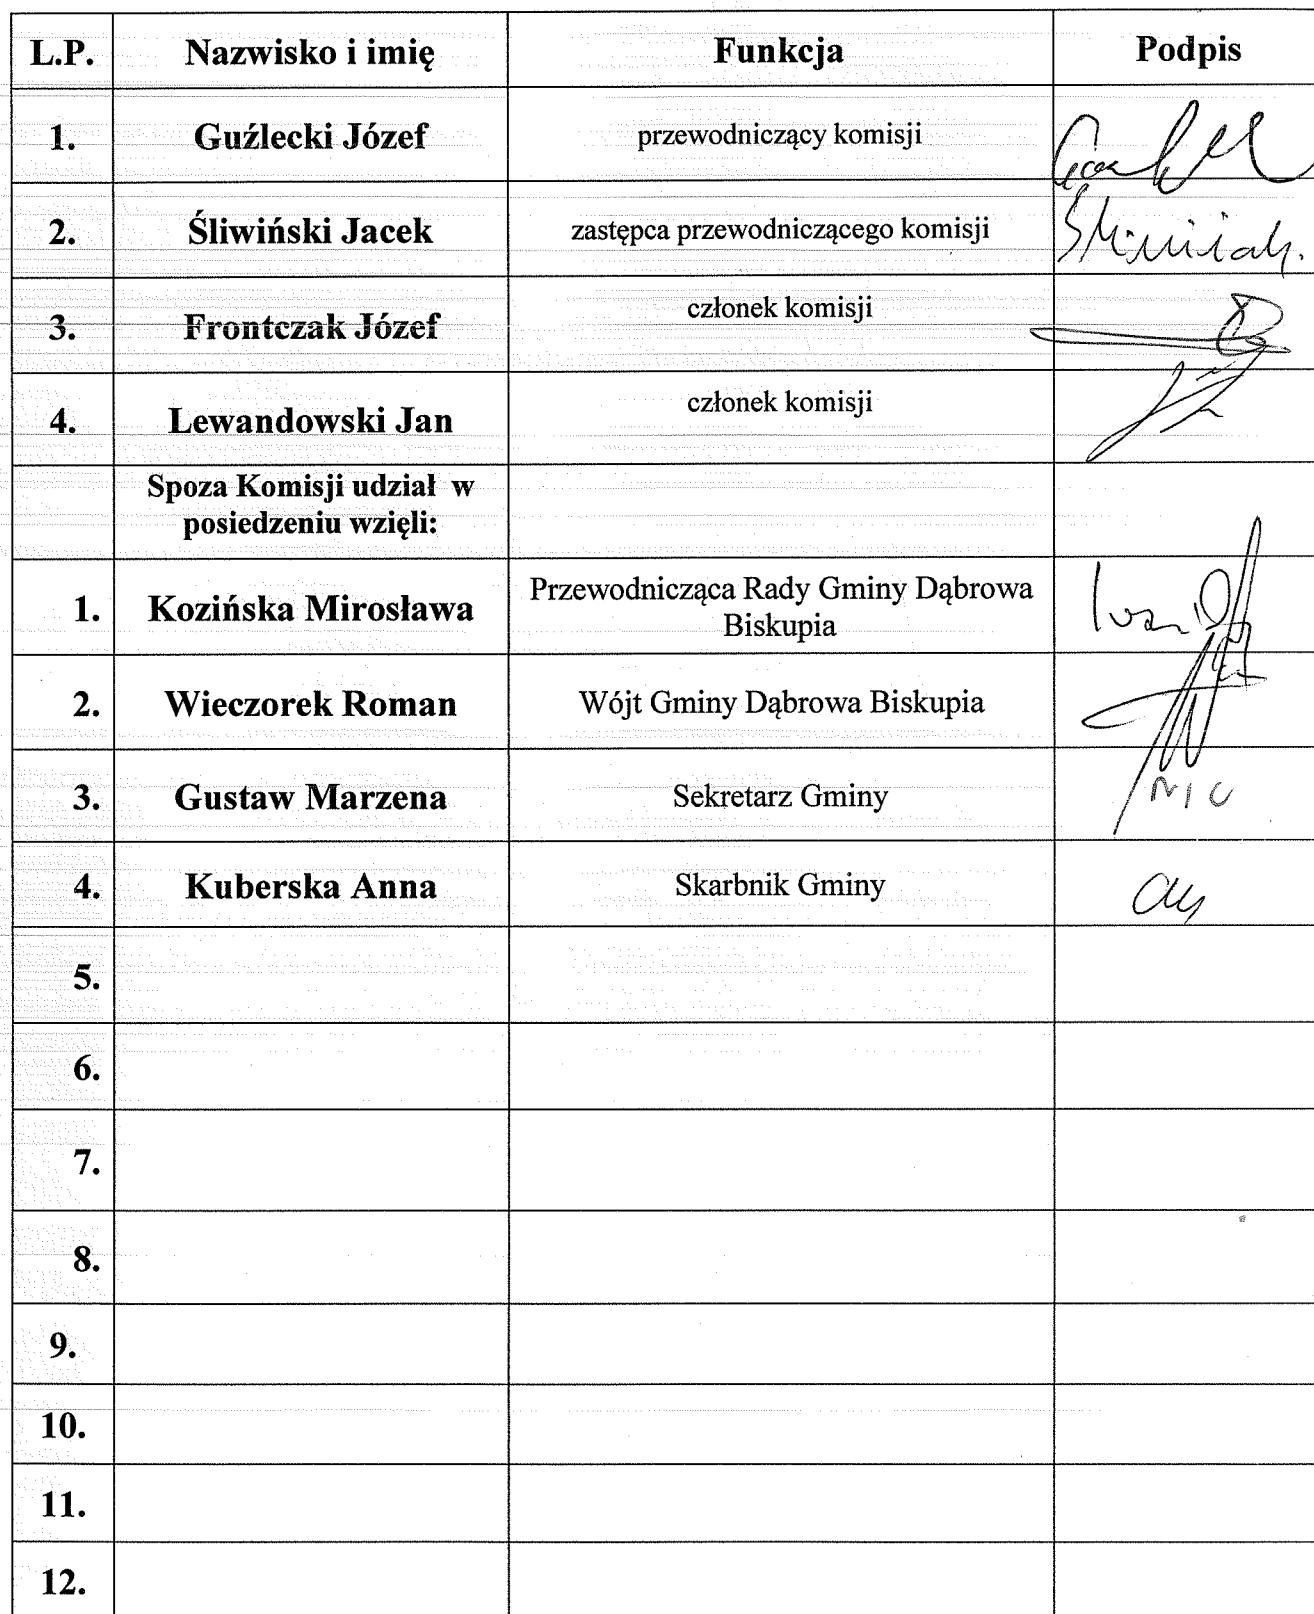 L.P. Nazwisko i imię Funkcja Podpis
1. Guźlecki Józef przewodniczący komisji
2. Śliwiński Jacek zastępca przewodniczącego komisji
3. Frontczak Józef członek komisji
4. Lewandowski Jan członek komisji
Spoza Komisji udział w
posiedzeniu wzięli:
1. Kozińska Mirosława Przewodnicząca Rady Gminy Dąbrowa
Biskupia
2. Wieczorek Roman Wójt Gminy Dąbrowa Biskupia
3. Gustaw Marzena Sekretarz Gminy
4. Kuberska Anna Skarbnik Gminy
5.
6.
7.
8.
9.
10.
11.
12.